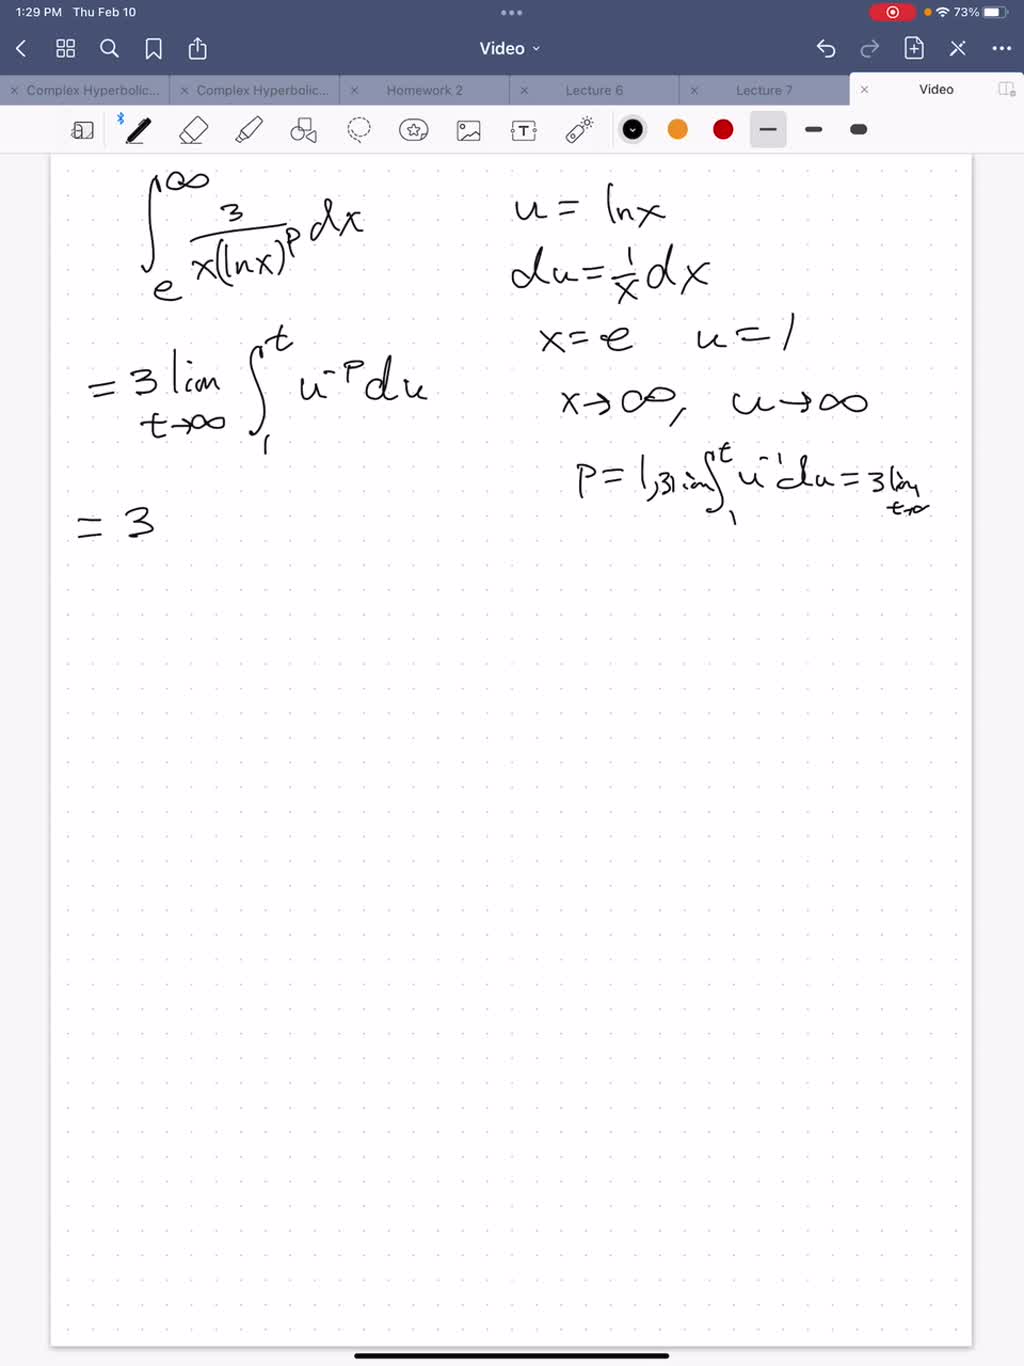 1:29 PM Thu Feb 10
73%
Video
Complex Hyperbolic... Complex Hyperbolic... Homework 2 Lecture 6 Lecture 7 Video
∫_e^∞ 3/(x(lnx)^p) dx
u = lnx
du = 1/x dx
x = e u = 1
= 3 lim_{t→∞} ∫_1^t u^{-p} du
x → ∞, u → ∞
p = 1, 3 lim ∫_1^t u^{-1} du = 3 lim_{t→∞}
= 3